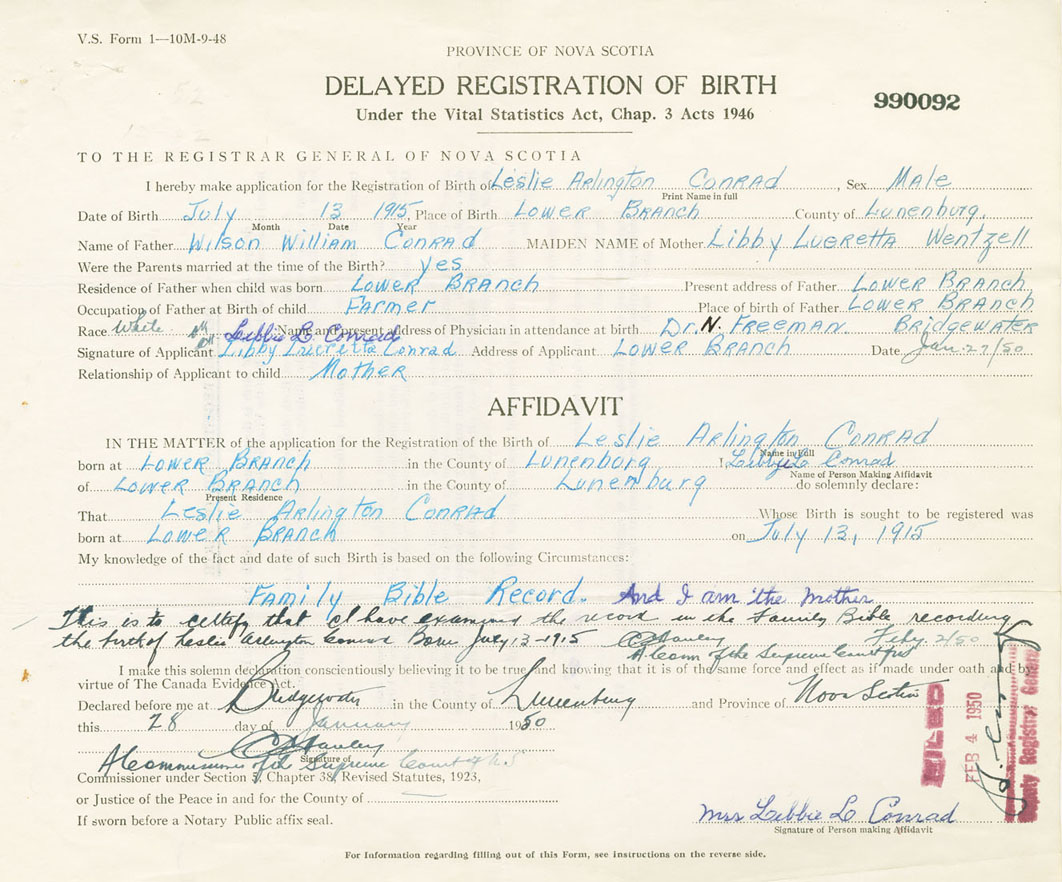 V.S. Form 1—10M-9-48
PROVINCE OF NOVA SCOTIA
DELAYED REGISTRATION OF BIRTH
990092
Under the Vital Statistics Act, Chap. 3 Acts 1946
TO THE REGISTRAR GENERAL OF NOVA SCOTIA
I hereby make application for the Registration of Birth of Leslie Arlington CONRAD, Sex Male
Print Name in full
Date of Birth July 13 1915, Place of Birth LOWER BRANCH County of Lunenburg.
Month Date Year
Name of Father Wilson William CONRAD MAIDEN NAME of Mother Libby Lueretta Wentzell
Were the Parents married at the time of the Birth? yes
Residence of Father when child was born LOWER BRANCH Present address of Father LOWER BRANCH
Occupation of Father at Birth of child FARMER Place of birth of Father LOWER BRANCH
Race White Libbie L Conrad Name and present address of Physician in attendance at birth Dr. N. FREEMAN BRIDGEWATER
Signature of Applicant Libby Lueretta Conrad Address of Applicant LOWER BRANCH Date Jan. 27/50
Relationship of Applicant to child Mother
AFFIDAVIT
IN THE MATTER of the application for the Registration of the Birth of Leslie Arlington CONRAD
Name in full
born at LOWER BRANCH in the County of Lunenburg I Libbie L Conrad
Name of Person Making Affidavit
of LOWER BRANCH in the County of Lunenburg do solemnly declare:
Present Residence
That Leslie Arlington CONRAD Whose Birth is sought to be registered was
born at LOWER BRANCH on July 13, 1915
My knowledge of the fact and date of such Birth is based on the following Circumstances:
Family Bible Record. And I am the Mother
This is to certify that I have examined the record in the Family Bible recording
the birth of Leslie Arlington Conrad Born July, 13-1915 Feby 2/50
A Comm of the Supreme Court
I make this solemn declaration conscientiously believing it to be true and knowing that it is of the same force and effect as if made under oath and by
virtue of The Canada Evidence Act.
Declared before me at Bridgewater in the County of Lunenburg and Province of Nova Scotia
this 28 day of January 1950
Signature of
A Commissioner of the Supreme Court of N S
Commissioner under Section 3, Chapter 38, Revised Statutes, 1923,
or Justice of the Peace in and for the County of
If sworn before a Notary Public affix seal.
FILED
FEB 4 1950
Deputy Registrar General
Mrs Libbie L Conrad
Signature of Person making Affidavit
For Information regarding filling out of this Form, see instructions on the reverse side.